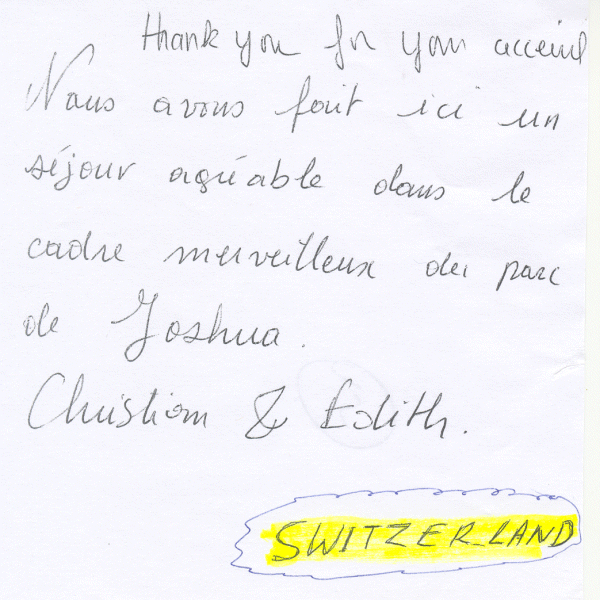 Thank you for your acceuil
Nous avons fait ici un
séjour agréable dans le
cadre merveilleux du parc
de Joshua.
Christian & Edith.
SWITZERLAND